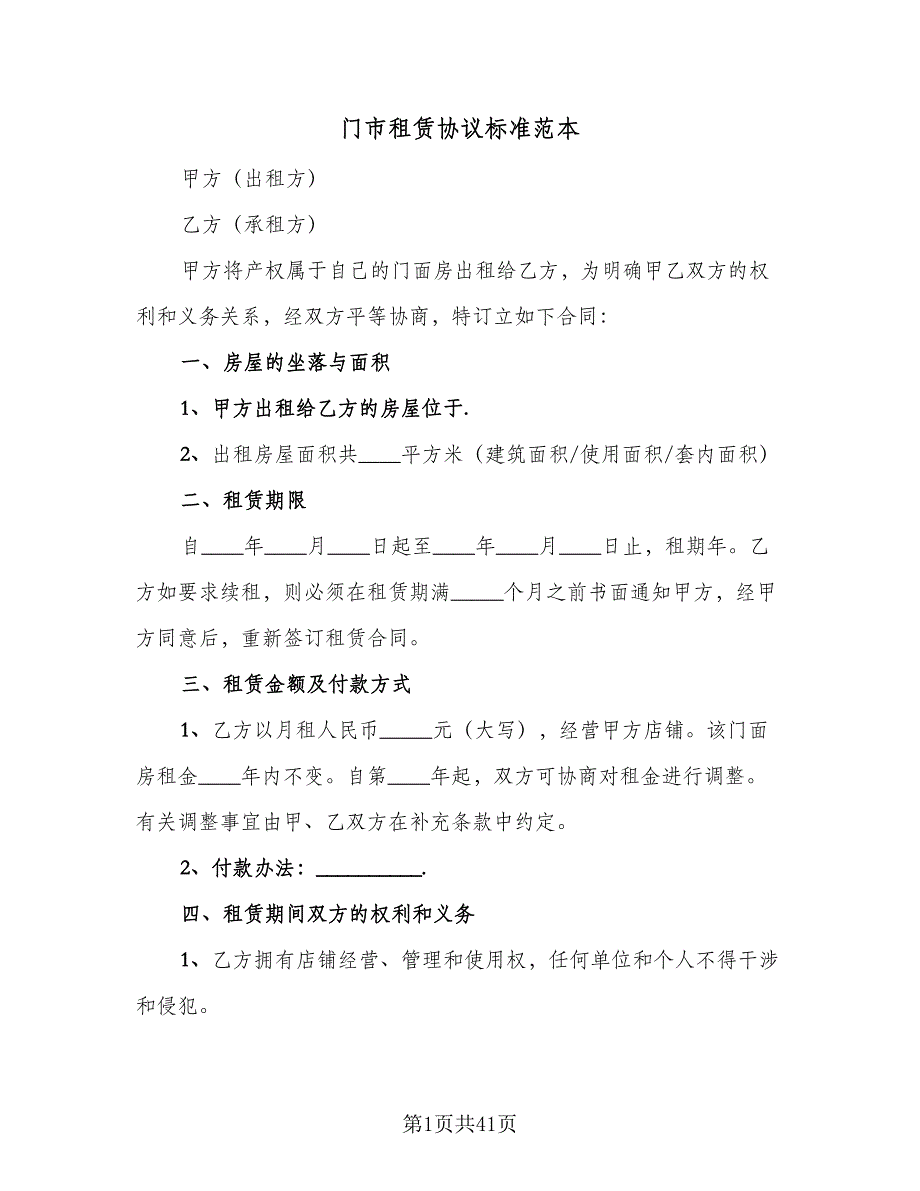 门市租赁协议标准范本
甲方（出租方）
乙方（承租方）
甲方将产权属于自己的门面房出租给乙方，为明确甲乙双方的权
利和义务关系，经双方平等协商，特订立如下合同：
一、房屋的坐落与面积
1、甲方出租给乙方的房屋位于.
2、出租房屋面积共____平方米（建筑面积/使用面积/套内面积）
二、租赁期限
自____年____月____日起至____年____月____日止，租期年。乙
方如要求续租，则必须在租赁期满_____个月之前书面通知甲方，经甲
方同意后，重新签订租赁合同。
三、租赁金额及付款方式
1、乙方以月租人民币_____元（大写），经营甲方店铺。该门面
房租金____年内不变。自第____年起，双方可协商对租金进行调整。
有关调整事宜由甲、乙双方在补充条款中约定。
2、付款办法：__________.
四、租赁期间双方的权利和义务
1、乙方拥有店铺经营、管理和使用权，任何单位和个人不得干涉
和侵犯。
第1页共41页